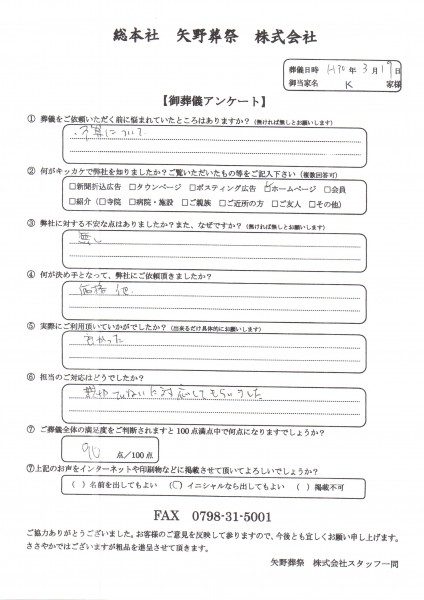 総本社 矢野葬祭 株式会社
葬儀日時 H30年3月19日
御当家名 K 家様
【御葬儀アンケート】
① 葬儀をご依頼いただく前に悩まれていたところはありますか？(無ければ無しとお願いします)
予算について
② 何がキッカケで弊社を知りましたか？ご覧いただいたもの等をご記入下さい(複数回答可)
□新聞折込広告 □タウンページ □ポスティング広告 ☑ホームページ □会員
□紹介(□寺院 □病院・施設 □ご親族 □ご近所の方 □ご友人 □その他)
③ 弊社に対する不安な点はありましたか？また、なぜですか？(無ければ無しとお願いします)
無し
④ 何が決め手となって、弊社にご依頼頂きましたか？
価格 他
⑤ 実際にご利用頂いていかがでしたか？(出来るだけ具体的にお願いします)
良かった
⑥ 担当のご対応はどうでしたか？
親切ていねいに対応してもらいました
⑦ ご葬儀全体の満足度をご判断されますと100点満点中で何点になりますでしょうか？
90 点/100点
⑦上記のお声をインターネットや印刷物などに掲載させて頂いてよろしいでしょうか？
( )名前を出してもよい (○)イニシャルなら出してもよい ( )掲載不可
FAX 0798-31-5001
ご協力ありがとうございました。お客様のご意見を反映して参りますので、今後とも宜しくお願い申し上げます。
ささやかではございますが粗品を進呈させて頂きます。
矢野葬祭 株式会社スタッフ一同